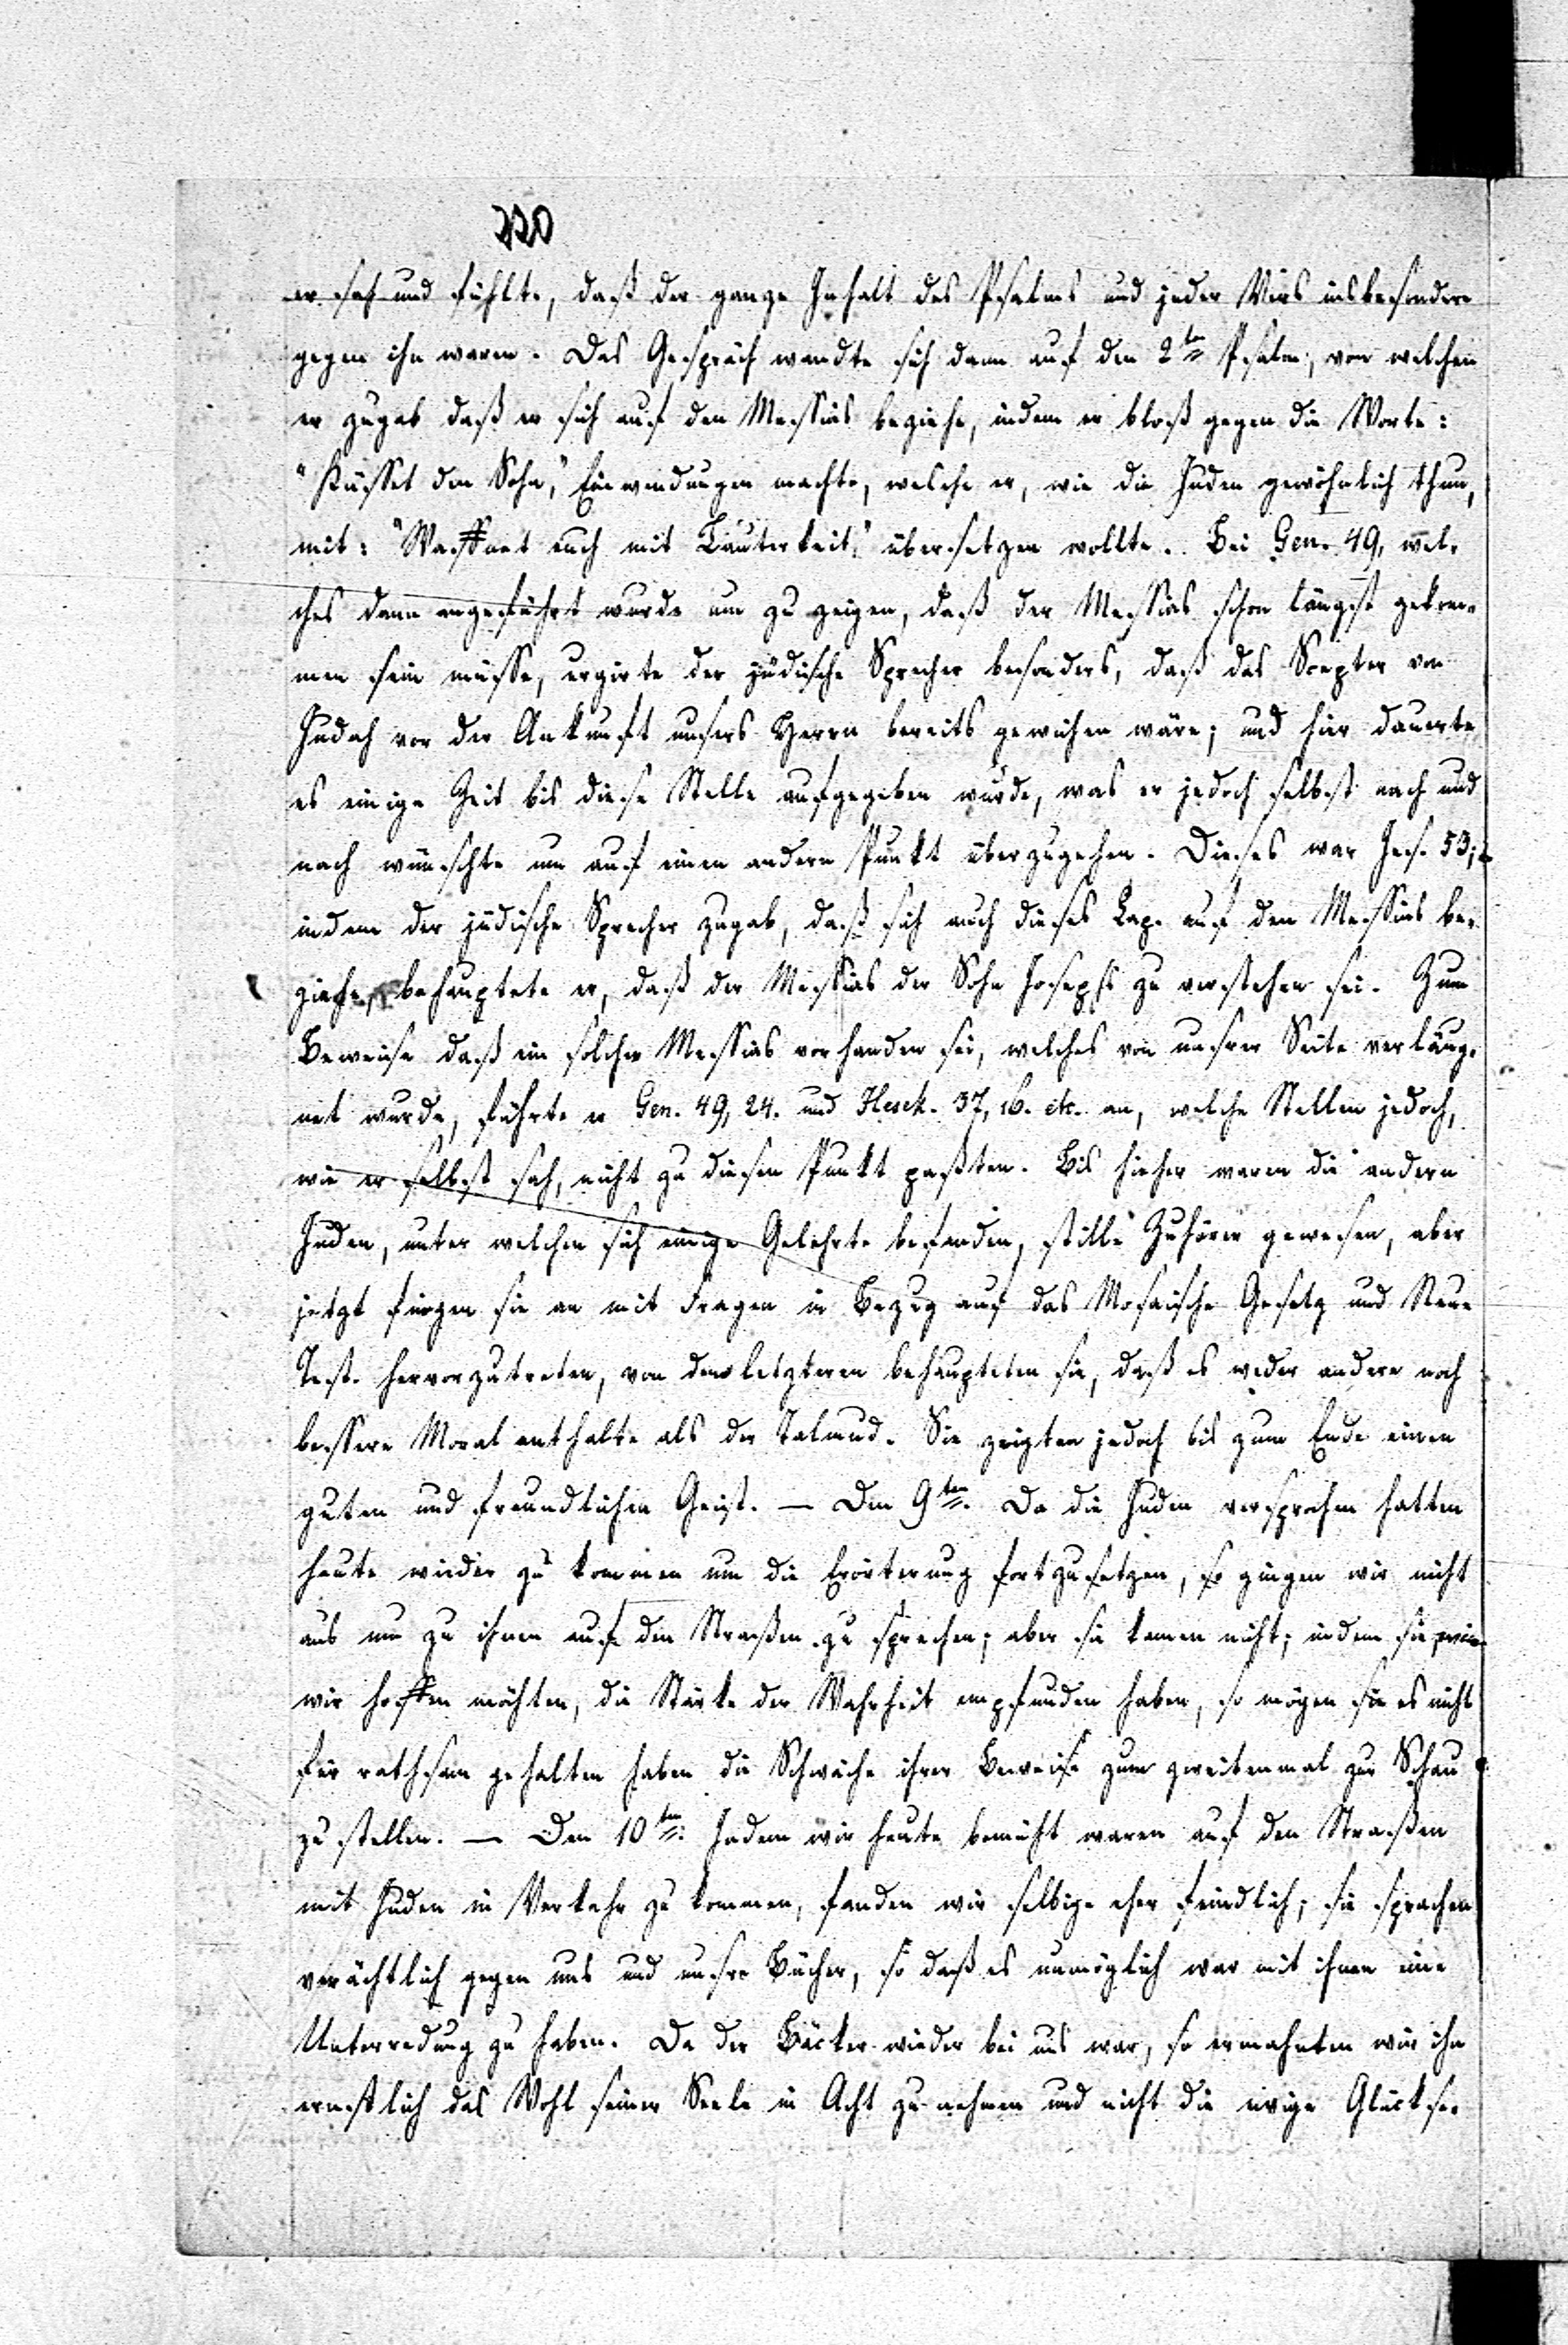 220
er sah und fühlte, daß der ganze Inhalt des Psalms und jeder Vers insbesondere
gegen ihn waren. Das Gespräch wandte sich dann auf den 2ten Psalm, von welchem
er zugab daß er sich auf den Messias beziehe, indem er bloß gegen die Worte:
"Küsset den Sohn," Einwendungen machte, welche er, wie die Juden gewöhnlich thun,
mit: "Waffnet euch mit Lauterkeit," übersetzen wollte. Bei Gen. 49, wel-
ches dann angeführt wurde um zu zeigen, daß der Messias schon längst gekom-
men sein müsse, urgirte der jüdische Sprecher besonders, daß das Scepter von
Judah vor der Ankunft unsers Herrn bereits gewichen wäre; und hier dauerte
es einige Zeit bis diese Stelle aufgegeben wurde, was er jedoch selbst nach und
nach wünschte um auf einen andern Punkt überzugehen. Dieses war Jes. 53;
indem der jüdische Sprecher zugab, daß sich auch dieses Cap. auf den Messias be-
ziehe, behauptete er, daß der Messias der Sohn Josephs zu verstehen sei. Zum
Beweise daß ein solcher Messias vorhanden sei, welches von unsrer Seite verläug-
net wurde, führte er Gen. 49, 24. und Hesek. 37, 16. etc. an, welche Stellen jedoch,
wie er selbst sah, nicht zu diesem Punkt paßten. Bis hieher waren die andern
Juden, unter welchen sich einige Gelehrte befanden, stille Zuhörer gewesen, aber
jetzt fingen sie an mit Fragen in Bezug auf das Mosaische Gesetz und Neue
Test. hervorzutreten, von dem letzteren behaupteten sie, daß es weder andere noch
bessere Moral enthalte als der Talmud. Sie zeigten jedoch bis zum Ende einen
guten und freundlichen Geist. — Den 9ten. Da die Juden versprochen hatten
heute wieder zu kommen um die Erörterung fortzusetzen, so gingen wir nicht
aus um zu ihnen auf den Straßen zu sprechen; aber sie kamen nicht; indem sie, wie
wir hoffen möchten, die Stärke der Wahrheit empfunden haben, so mögen sie es nicht
für rathsam gehalten haben die Schwäche ihrer Beweise zum zweitenmal zur Schau
zu stellen. — Den 10ten. Indem wir heute bemüht waren auf den Straßen
mit Juden in Verkehr zu kommen, fanden wir selbige eher feindlich; sie sprachen
verächtlich gegen uns und unsre Bücher, so daß es unmöglich war mit ihnen eine
Unterredung zu haben. Da der Bäcker wieder bei uns war, so ermahnten wir ihn
ernstlich das Wohl seiner Seele in Acht zu nehmen und nicht die ewige Glückse-